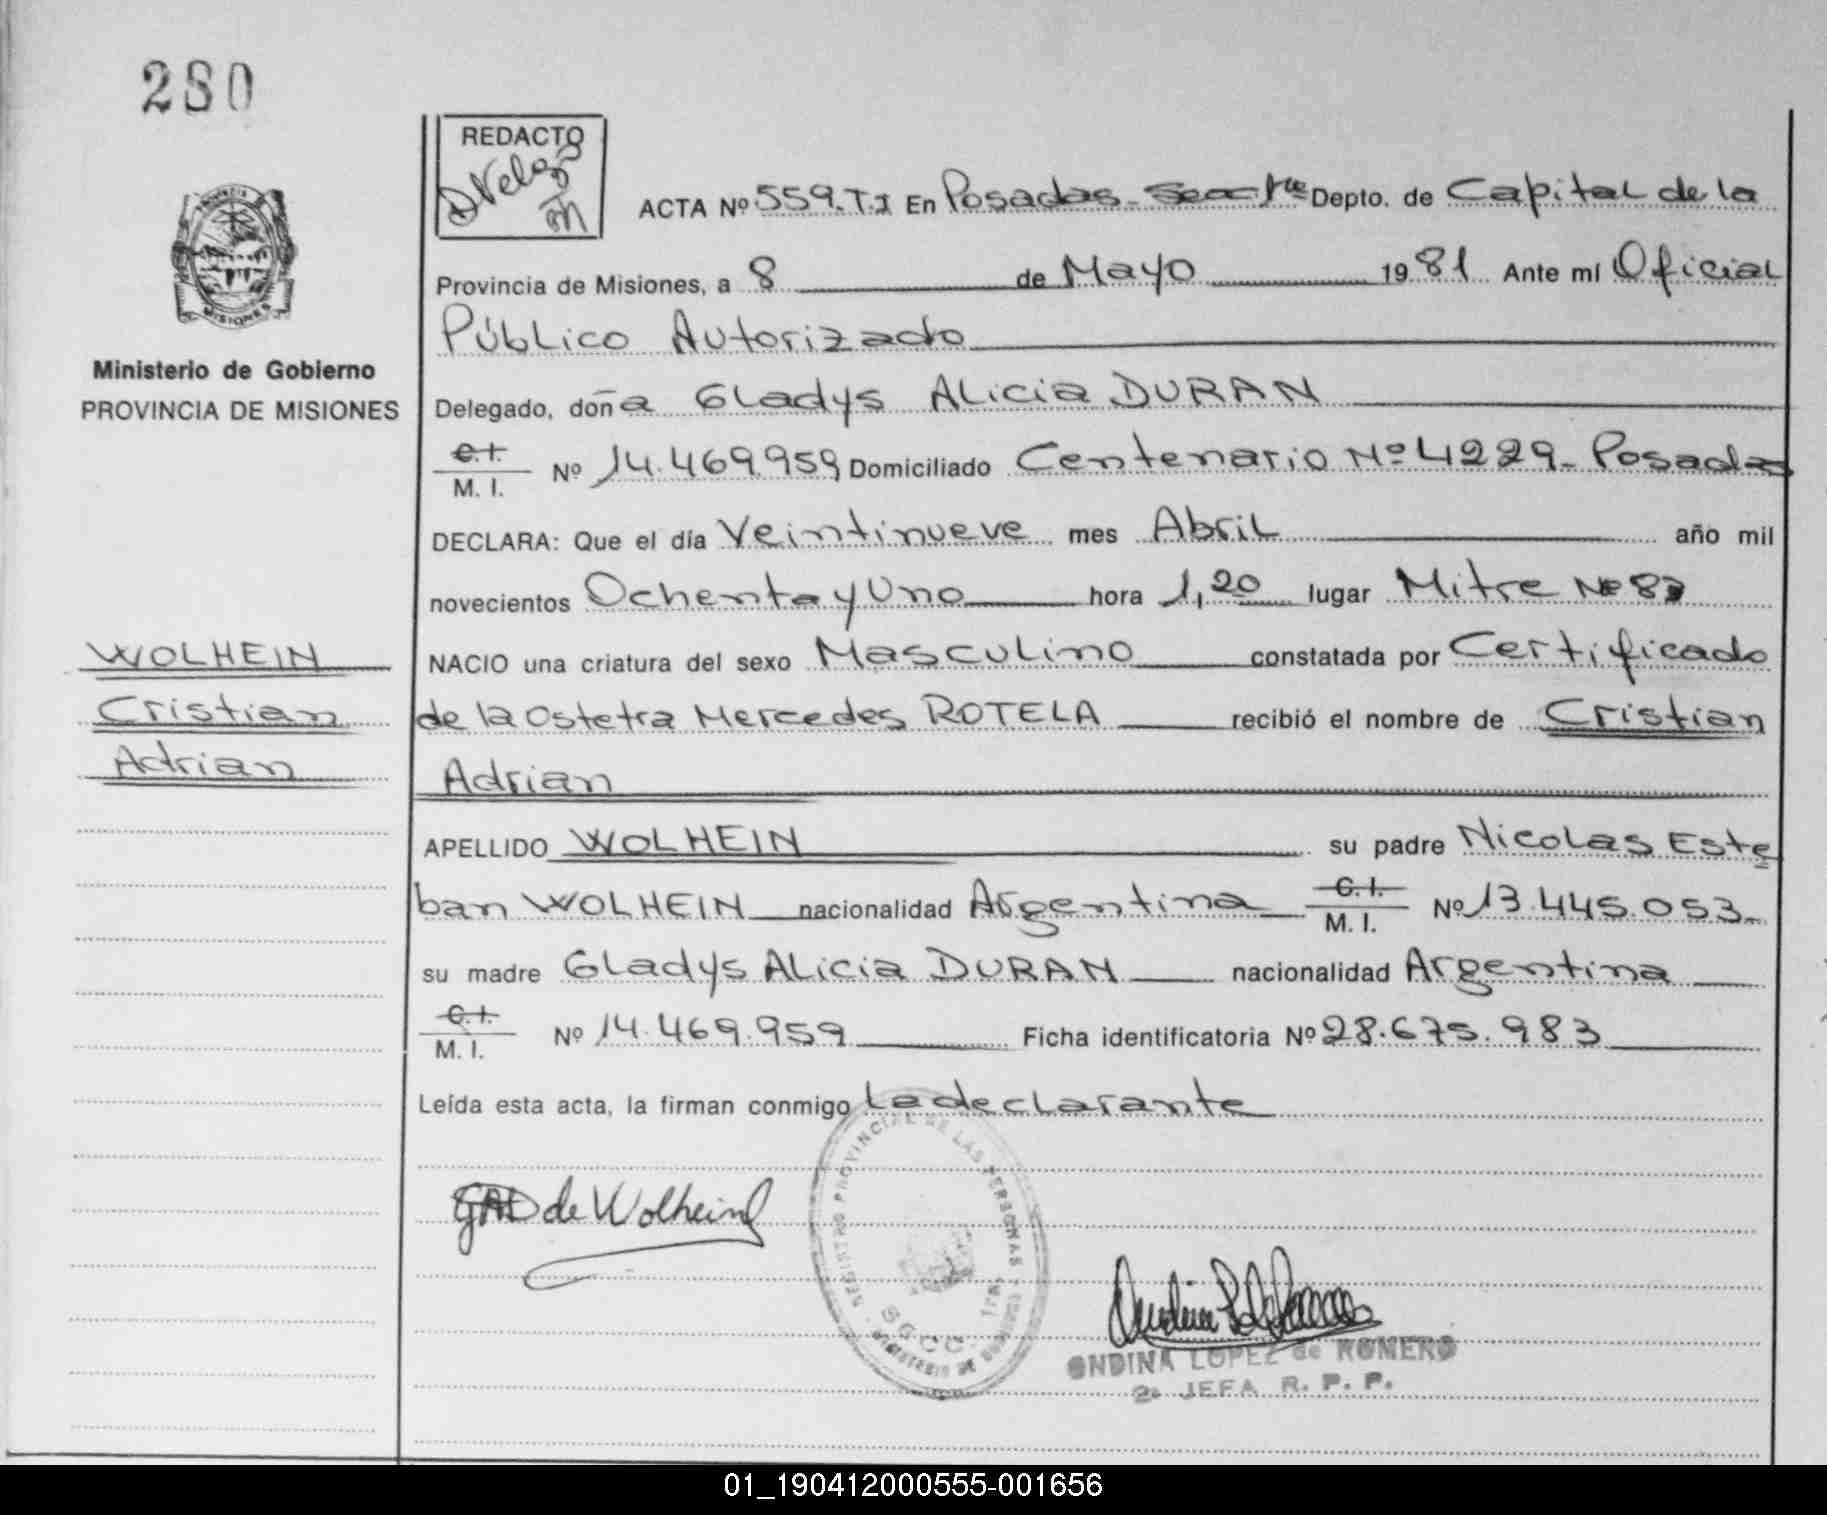 280
REDACTO
PROVINCIA
MISIONES
Ministerio de Gobierno
PROVINCIA DE MISIONES
ACTA Nº 559.T.I En Posadas - Depto. de Capital de la
Provincia de Misiones, a 8 de Mayo 1981 Ante mí Oficial
Público Autorizado
Delegado, doña Gladys Alicia DURAN
C.I.
M. I. Nº 14.469.959 Domiciliado Centenario Nº 4229 - Posadas
DECLARA: Que el día Veintinueve mes Abril año mil
novecientos Ochenta y Uno hora 1,20 lugar Mitre Nº
WOLHEIN
Cristian
Adrian
NACIO una criatura del sexo Masculino constatada por Certificado
de la Ostetra Mercedes ROTELA recibió el nombre de Cristian
Adrian
APELLIDO WOLHEIN su padre Nicolas Este
ban WOLHEIN nacionalidad Argentina C.I.
M. I. Nº 13.445.053
su madre Gladys Alicia DURAN nacionalidad Argentina
C.I.
M. I. Nº 14.469.959 Ficha identificatoria Nº 28.675.983
Leída esta acta, la firman conmigo La declarante
GAD de Wolhein
REGISTRO PROVINCIAL DE LAS PERSONAS
MINISTERIO DE GOBIERNO
ONDINA LOPEZ de ROMERO
2a JEFA R. P. P.
01_190412000555-001656